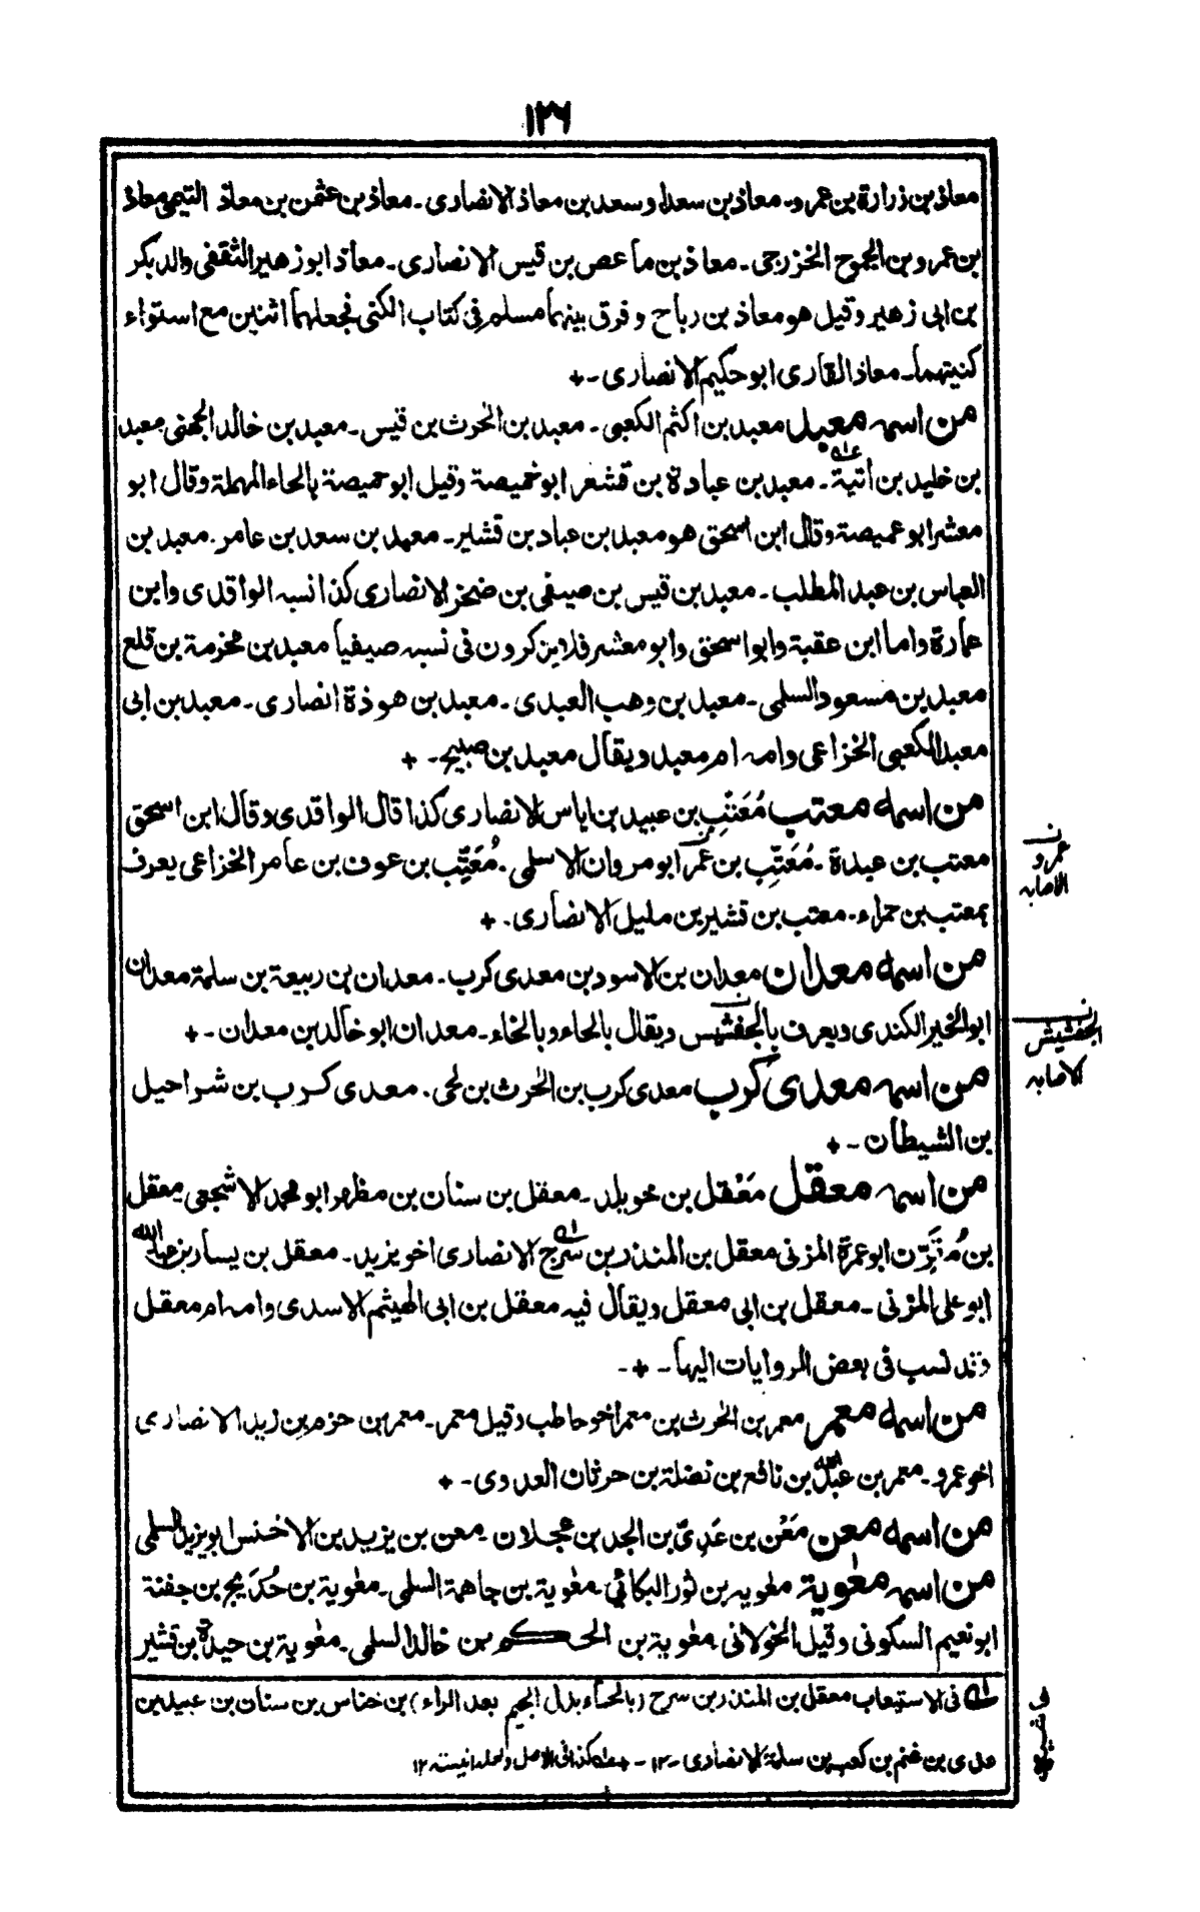 ١٢٦
معاذ بن زرارة بن عمرو۔ معاذ بن سعد او سعد بن معاذ الانصارى۔ معاذ بن عثمن بن معاذ التيمى معاذ
بن عمرو بن الجموح الخزرجى۔ معاذ بن ماعص بن قيس الانصارى۔ معاذ ابو زهير الثقفى والد بكر
بن ابى زهير وقيل هو معاذ بن رباح وفرق بينهما مسلم فى كتاب الكنى فجعلهما اثنين مع استواء
كنيتهما۔ معاذ القارى ابو حكيم الانصارى۔+
من اسمه معبد معبد بن اكثم الكعبى۔ معبد بن الحرث بن قيس۔ معبد بن خالد الجهنى معبد
بن خليد بن اثبة۔ معبد بن عبادة بن قشعر ابو خميصة وقيل ابو حميصة بالحاء المهملة وقال ابو
معشر ابو عميصة وقال ابن اسحق هو معبد بن عباد بن قشير۔ معبد بن سعد بن عامر۔ معبد بن
العباس بن عبد المطلب۔ معبد بن قيس بن صيفى بن ضخر الانصارى كذا نسبه الواقدى وابن
عمارة واما ابن عقبة وابو اسحق وابو معشر فلا يذكرون فى نسبه صيفيا معبد بن مخرمة بن قلع
معبد بن مسعود السلمى۔ معبد بن وهب العبدى۔ معبد بن هوذة انصارى۔ معبد بن ابى
معبد الكعبى الخزاعى وامه ام معبد ويقال معبد بن صبيح۔+
من اسمه معتب مُعَتِّب بن عبيد بن اياس الانصارى كذا قال الواقدى وقال ابن اسحق
معتب بن عبدة۔ مُعَتِّب بن عمر ابو مروان الاسلمى۔ مُعَتِّب بن عوف بن عامر الخزاعى يعرف
بمعتب بن حمراء۔ معتب بن قشير بن مليل الانصارى۔+
ن عمرو
الاصابه
من اسمه معدان معدان بن الاسود بن معدى كرب۔ معدان بن ربيعة بن سلمة معدان
ابو الخير الكندى ويعرف بالجفشيس ويقال بالحاء وبالخاء۔ معدان ابو خالد بن معدان۔+
ن الجفشيش
الاصابه
من اسمه معدى كرب معدى كرب بن الحرث بن لحى۔ معدى كرب بن شراحيل
بن الشيطان۔+
من اسمه معقل مَعْقل بن خويلد۔ معقل بن سنان بن مظهر ابو محمد الاشجعى معقل
بن مُقَرِّن ابو عمرة المزنى معقل بن المنذر بن سرج الانصارى اخو يزيد۔ معقل بن يسار بن عبد الله
ابو على المزنى۔ معقل بن ابى معقل ويقال فيه معقل بن ابى الهيثم الاسدى وامه ام معقل
وقد نسب فى بعض الروايات اليها۔+۔
من اسمه معمر معمر بن الحرث بن معمر اخو حاطب وقيل معمر۔ معمر بن حزم بن زيد الانصارى
اخو عمرو۔ معمر بن عبد الله بن نافع بن نضلة بن حرثان العدوى۔+
من اسمه معن مَعْن بن عَدِىّ بن الجد بن عجلان۔ معن بن يزيد بن الاخنس ابو يزيد السلمى
من اسمه معٰوية معٰويه بن ثور البكائى۔ معٰوية بن جاهمة السلمى۔ معٰوية بن حُدَيج بن جفنة
ابو نعيم السكونى وقيل الخولانى معٰوية بن الحكم بن خالد السلمى۔ معٰوية بن حيدة بن قشير
لہ فى الاستيعاب معقل بن المنذر بن سرح (بالحاء بدل الجيم بعد الراء) بن خناس بن سنان بن عبيد بن
عدى بن غنم بن كعب بن سلمة الانصارى۔١٢۔+ عہ كذا فى الاصل ١٢